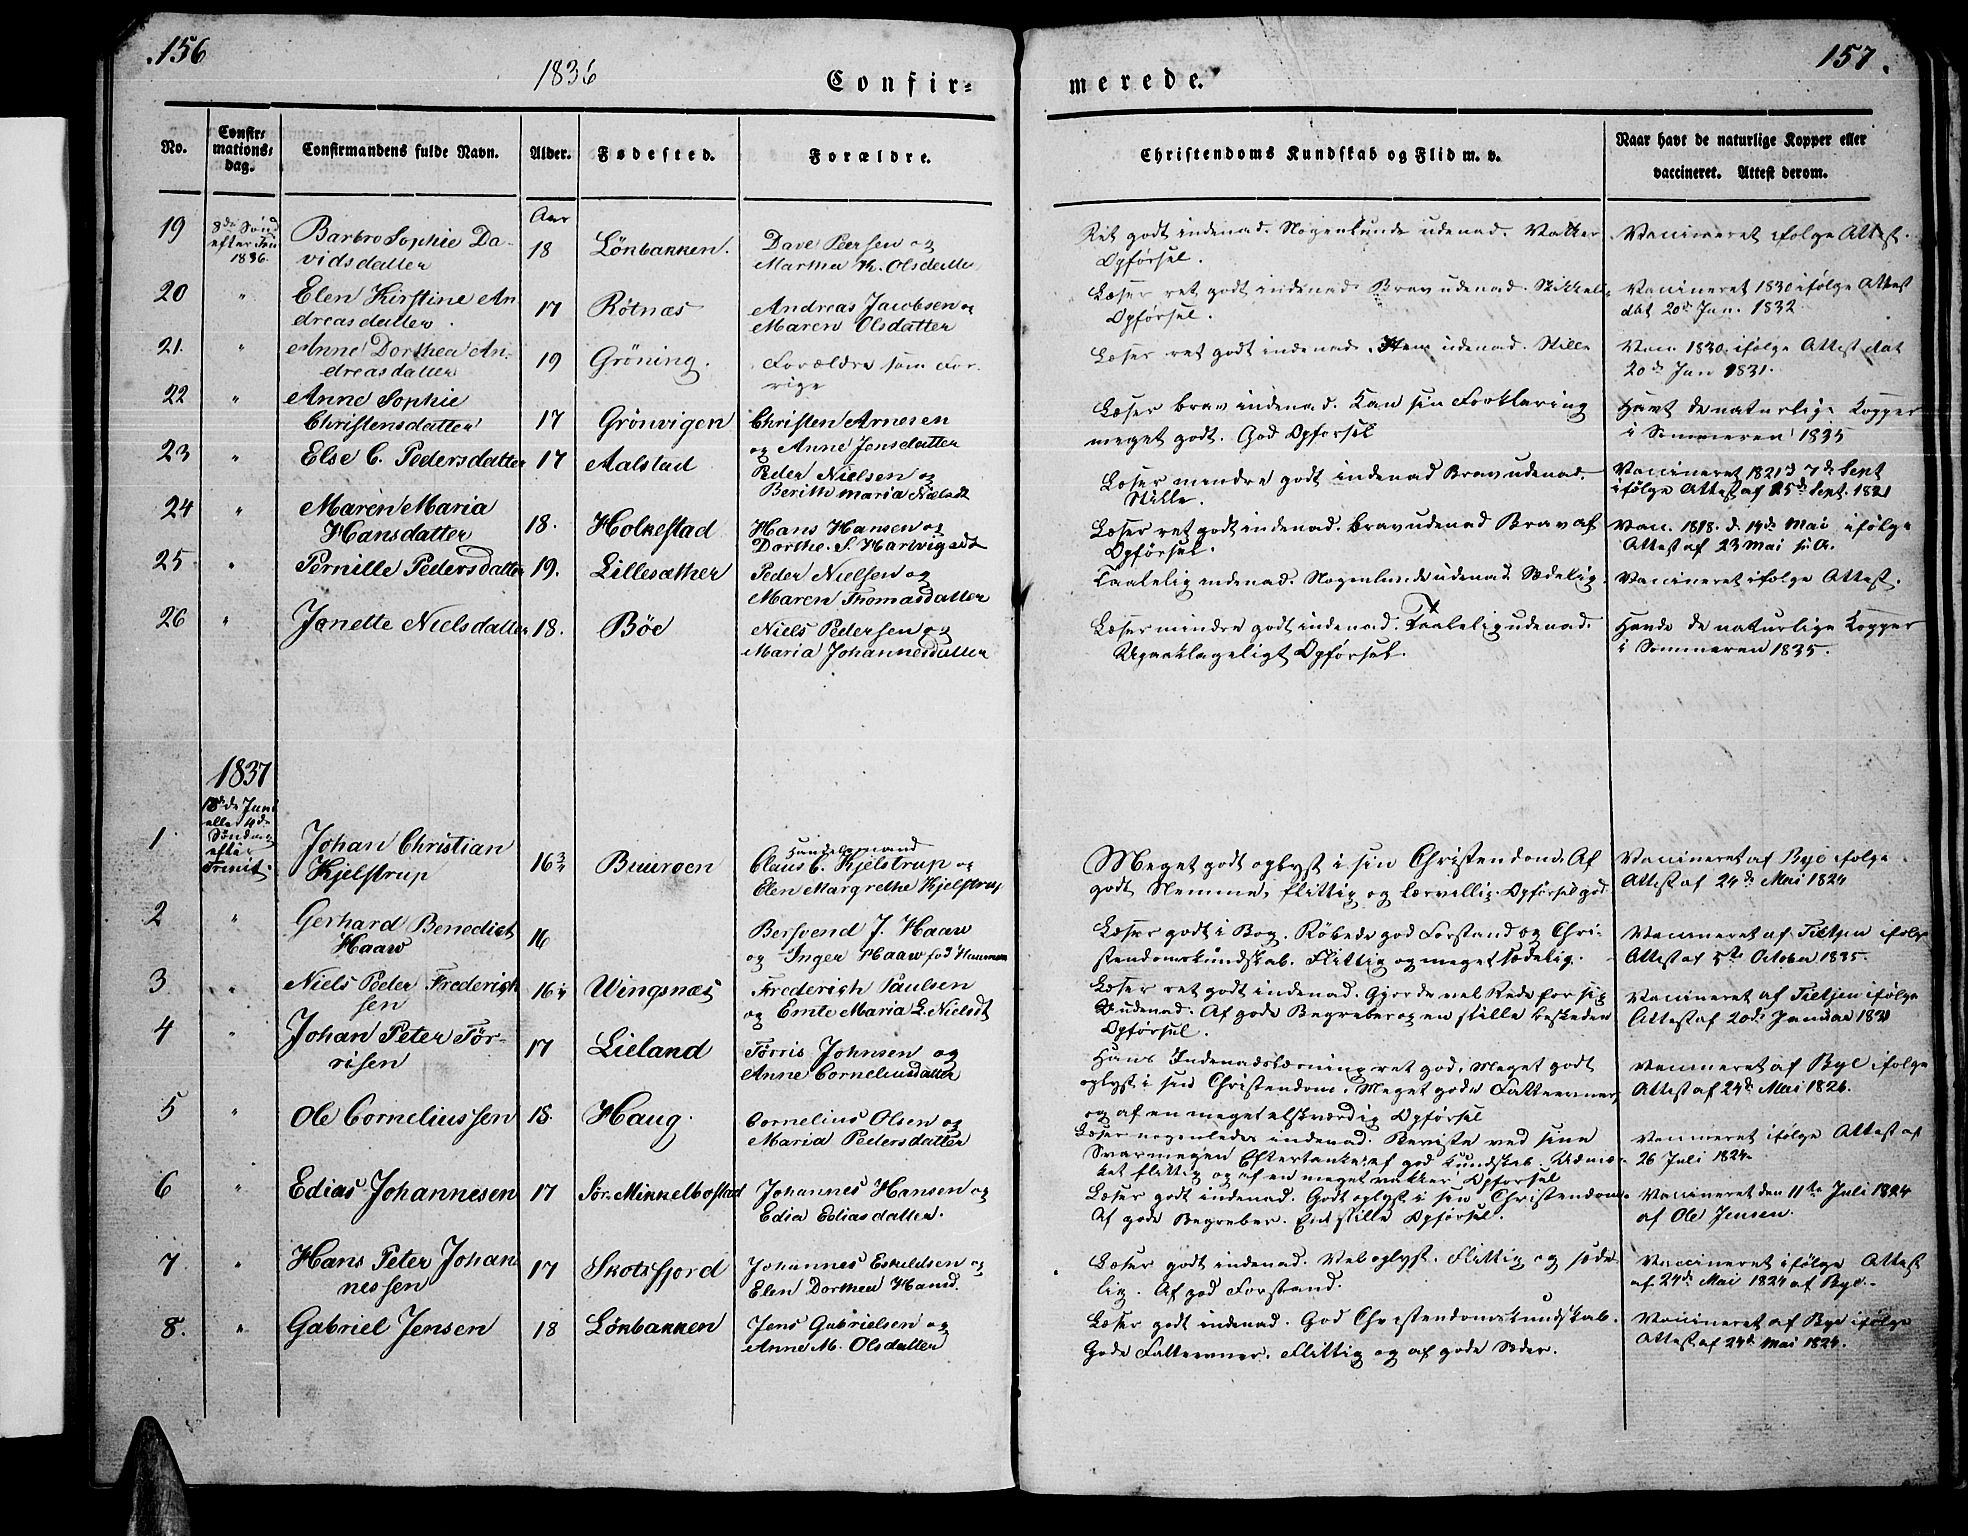 156
1836
Confir-
merede.
157.
No.
Confir-
mations-
dag.
Confirmandens fulde Navn.
Alder.
Fødested.
Forældre.
Christendoms Kundskab og Flid m. v.
Naar havt de naturlige Kopper eller
vaccineret. Attest derom.
19
8de Sønd
efter Trin
1836.
Barbro Sophie Da-
vidsdatter
Aar
18
Lönbakken.
Dave Peersen og
Martha K. Olsdatter
Ret godt indenad. Nogenlunde udenad. Vakker
Opførsel.
Vaccineret ifølge Attest.
20
"
Elen Kirstine An
dreasdatter.
17
Røtnæs
Andreas Jacobsen og
Maren Olsdatter
Læser ret godt indenad. Brav udenad.
Opførsel.
Vaccineret 1830 ifølge Attest
dat 20de Jan. 1832
21.
"
Anne Dorthea An-
dreasdatter
19
Gröning.
Forældre som For-
rige
Læser ret godt indenad. udenad. Stille
Vacc. 1830. ifølge Attest dat
20de Jan 1831.
22
"
Anne Sophie
Christensdatter
17
Grönvigen
Christen Arnesen
og Anne Jensdatter
Læser brav indenad. Kan sin Forklaring
meget godt. God Opførsel
Havt de naturlige Kopper
i Sommeren 1835
23
"
Else C. Pedersdatter
17
Aalstad
Peder Nielsen og
Berith Maria Nielsdt
Læser mindre godt indenad Brav udenad.
Stille.
Vaccineret 1821 d 7de Sept
ifølge Attest af 25de Sept. 1821
24
"
Maren Maria
Hansdatter
18.
Holkestad
Hans Hansen og
Dorthe. S. Hartvigsdt
Læser ret godt indenad. brav udenad Brav af
Opførsel.
Vacc. 1818. d. 14de Mai ifølge
Attest af 23 Mai s. A.
25
"
Pernille Pedersdatter
19.
Lillesæther
Peder Nielsen og
Maren Thomasdatter
Taalelig indenad. Nogenlunde udenad. Sædelig.
Vaccineret ifølge Attest.
26
"
Janette Nielsdatter
18.
Böe
Niels Pedersen og
Maria Johannesdatter
Læser mindre godt indenad. Taalelig udenad.
Upaaklageligt Opførsel.
Havde de naturlige Kopper
i Sommeren 1835.
1837
18de Juni
eller 4de
Søndag
efter
Trinit.
1
Johan Christian
Kjelstrup
16¾
Buuroen
Handelsmand
Claus C. Kjelstrup og
Elen Margrethe Kjelstrup
Meget godt oplyst i sin Christendom. Af
godt Nemme, flittig og lærvillig. Opførsel god
Vaccineret af Bye ifølge
Attest af 24de Mai 1824
2
"
Gerhard Benedict
Haaw
16
Bersvend J. Haaw
og Inger Haaw fød
Læser godt i Bog. Røbede god Forstand og Chri-
stendomskundskab. Flittig og meget sædelig.
Vaccineret af Tietjen ifølge
Attest af 5te October 1835.
3
"
Niels Peder Frederich
sen
16¼
Wingsnæs
Frederich Paulsen
og Emte Maria L. Nielsdt
Læser ret godt indenad. Gjorde vel Rede for sig
udenad. Af gode Begreber og en stille beskeden
Opførsel.
Vaccineret af Tietjen ifølge
Attest af 20de Januar 1831
4
"
Johan Peter Tør-
risen
17
Lieland
Tørris Johnsen og
Anne Corneliusdatter
Hans Indenadslæsning ret god. Meget godt
oplyst i sin Christendom. Meget gode Fatteevner,
og af en meget elskværdig Opførsel
Vaccineret af Bye ifølge
Attest af 24de Mai 1826.
5
"
Ole Corneliussen
18
Haug.
Cornelius Olsen og
Maria Pedersdatter
Læser nogenledes indenad. Beviste ved sine
Svar megen Eftertanke, af god Kundskab. Udmær-
ket flittig og af en meget vakker Opførsel
Vaccineret ifølge Attest af
26 Juli 1824
6
"
Edias Johannesen
17
Sør. Mikkelbostad
Johannes Hansen og
Edia Ediasdatter.
Læser godt indenad. Godt oplyst i sin Christendom.
Af gode Begreber. En stille Opførsel.
Vaccineret den 11te Juli 1824
af Ole Jensen.
7
"
Hans Peter Johan
nessen
17
Skotsfjord
Johannes Eskildsen og
Elen Dorthea Hansd.
Læser godt indenad. Vel oplyst. Flittig og sæde-
lig. Af god Forstand.
Vaccineret ifølge Attest
af 24de Mai 1824 af Bye.
8.
"
Gabriel Jensen
18
Lönbakken
Jens Gabrielsen og
Anne M. Olsdatter
Læser godt indenad. God Christendomskundskab.
Gode Fatteevner. Flittig og af gode Sæder.
Vaccineret af Bye ifølge
Attest af 24de Mai 1824.